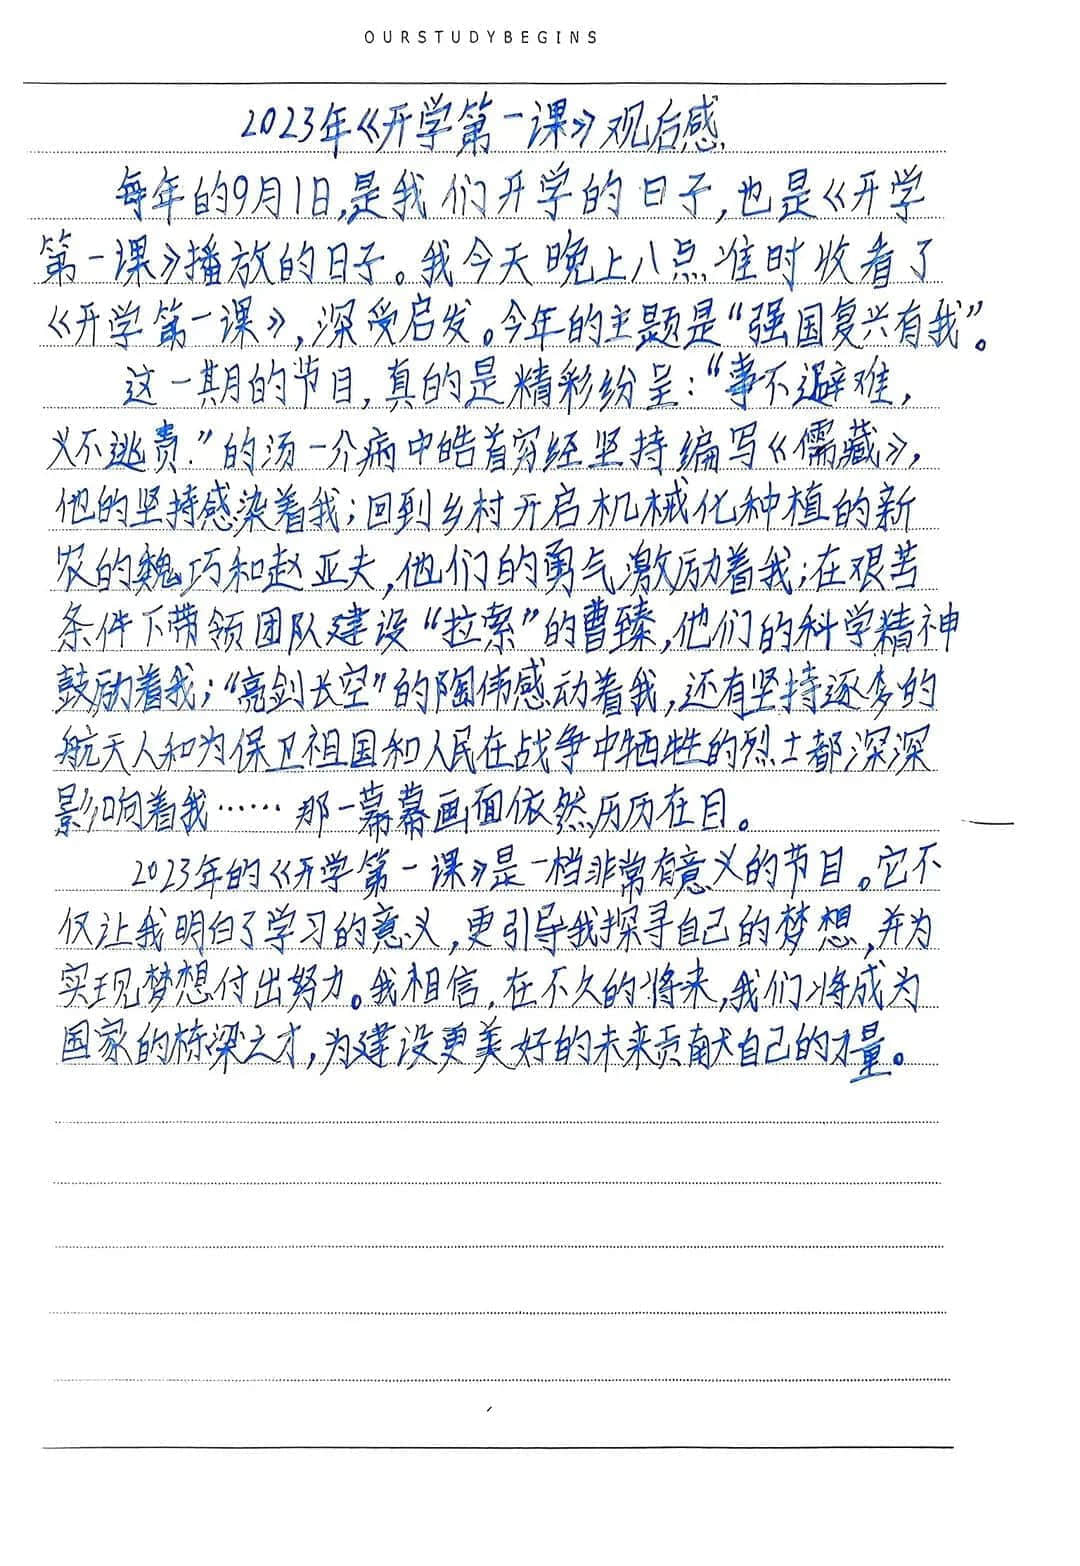 OURSTUDYBEGINS
2023年《开学第一课》观后感
每年的9月1日,是我们开学的日子,也是《开学
第一课》播放的日子。我今天晚上八点准时收看了
《开学第一课》,深受启发。今年的主题是“强国复兴有我”。
这一期的节目,真的是精彩纷呈:“事不避难,
义不逃责.”的汤一介病中皓首穷经坚持编写《儒藏》,
他的坚持感染着我;回到乡村开启机械化种植的新
农的魏巧和赵亚夫,他们的勇气激励着我;在艰苦
条件下带领团队建设“拉索”的曹臻,他们的科学精神
鼓励着我;“亮剑长空”的陶伟感动着我,还有坚持逐梦的
航天人和为保卫祖国和人民在战争中牺牲的烈士都深深
影响着我……那一幕幕画面依然历历在目。
2023年的《开学第一课》是一档非常有意义的节目。它不
仅让我明白了学习的意义,更引导我探寻自己的梦想,并为
实现梦想付出努力。我相信,在不久的将来,我们将成为
国家的栋梁之才,为建设更美好的未来贡献自己的力量。